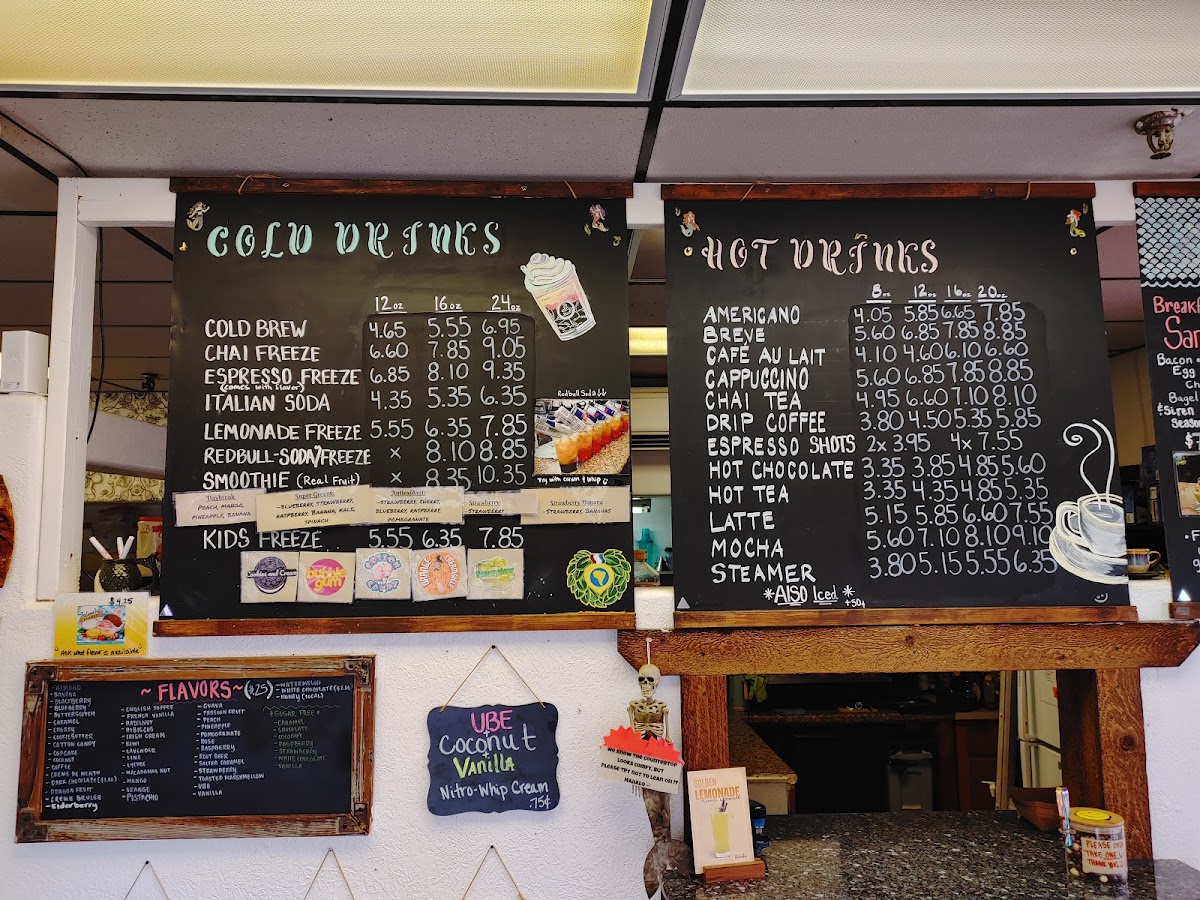 COLD DRINKS
12oz 16oz 24oz
COLD BREW 4.65 5.55 6.95
CHAI FREEZE 6.60 7.85 9.05
ESPRESSO FREEZE 6.85 8.10 9.35
(comes with flavor)
ITALIAN SODA 4.35 5.35 6.35
LEMONADE FREEZE 5.55 6.35 7.85
REDBULL-SODA/FREEZE × 8.10 8.85
SMOOTHIE (Real Fruit) × 8.35 10.35
Redbull Soda
Try with cream & whip
Daybreak
PEACH, MANGO,
PINEAPPLE, BANANA
Super Greens
-BLUEBERRY, STRAWBERRY,
RASPBERRY, BANANA, KALE,
SPINACH
Antioxidant
-STRAWBERRY, CHERRY,
BLUEBERRY, RASPBERRY,
POMEGRANATE
Strawberry
-STRAWBERRY
Strawberry Banana
-STRAWBERRY, BANANAS
KIDS FREEZE 5.55 6.35 7.85
Cookies and Cream
bubble
gum
COTTON
CANDY
ORANGE
HOT DRINKS
8oz 12oz 16oz 20oz
AMERICANO 4.05 5.85 6.65 7.85
BREVE 5.60 6.85 7.85 8.85
CAFÉ AU LAIT 4.10 4.60 6.10 6.60
CAPPUCCINO 5.60 6.85 7.85 8.85
CHAI TEA 4.95 6.60 7.10 8.10
DRIP COFFEE 3.80 4.50 5.35 5.85
ESPRESSO SHOTS 2x 3.95 4x 7.55
HOT CHOCOLATE 3.35 3.85 4.85 5.60
HOT TEA 3.35 4.35 4.85 5.35
LATTE 5.15 5.85 6.60 7.55
MOCHA 5.60 7.10 8.10 9.10
STEAMER 3.80 5.15 5.55 6.35
*ALSO Iced * +50¢
Breakf
San
Bacon
Egg
Ch
Bagel
&Siren
Season
$7
$4.25
ASK what flavor is available
~ FLAVORS ~ ($.75)
-ALMOND
-BANANA
-BLACKBERRY
-BLUEBERRY
-BUTTERSCOTCH
-CARAMEL
-CHERRY
-COOKIE BUTTER
-COTTON CANDY
-CUPCAKE
-COCONUT
-COFFEE
-CREME DE MENTH
-DARK CHOCOLATE ($1.00)
-DRAGON FRUIT
-CREME BRULEE
-Elderberry
-ENGLISH TOFFEE
-FRENCH VANILLA
-HAZELNUT
-HIBISCUS
-IRISH CREAM
-KIWI
-LAVENDER
-LIME
-LYCHEE
-MACADAMIA NUT
-MANGO
-ORANGE
-PISTACHIO
-GUAVA
-PASSION FRUIT
-PEACH
-PINEAPPLE
-POMEGRANATE
-ROSE
-RASPBERRY
-ROOT BEER
-SALTED CARAMEL
-STRAWBERRY
-TOASTED MARSHMELLOW
-UBE
-VANILLA
-WATERMELON
-WHITE CHOCOLATE ($1.00)
-HONEY (LOCAL)
*SUGAR FREE*
-CARAMEL
-CHOCOLATE
-COCONUT
-RASPBERRY
-STRAWBERRY
-WHITE CHOCOLATE
-VANILLA
UBE
Coconut
Vanilla
Nitro-Whip Cream
.75¢
WE KNOW THE COUNTERTOP
LOOKS COMFY, BUT
PLEASE TRY NOT TO LEAN ON IT
MAHALO
GOLDEN
LEMONADE
PLEASE ONLY
TAKE ONE!
THANK YOU